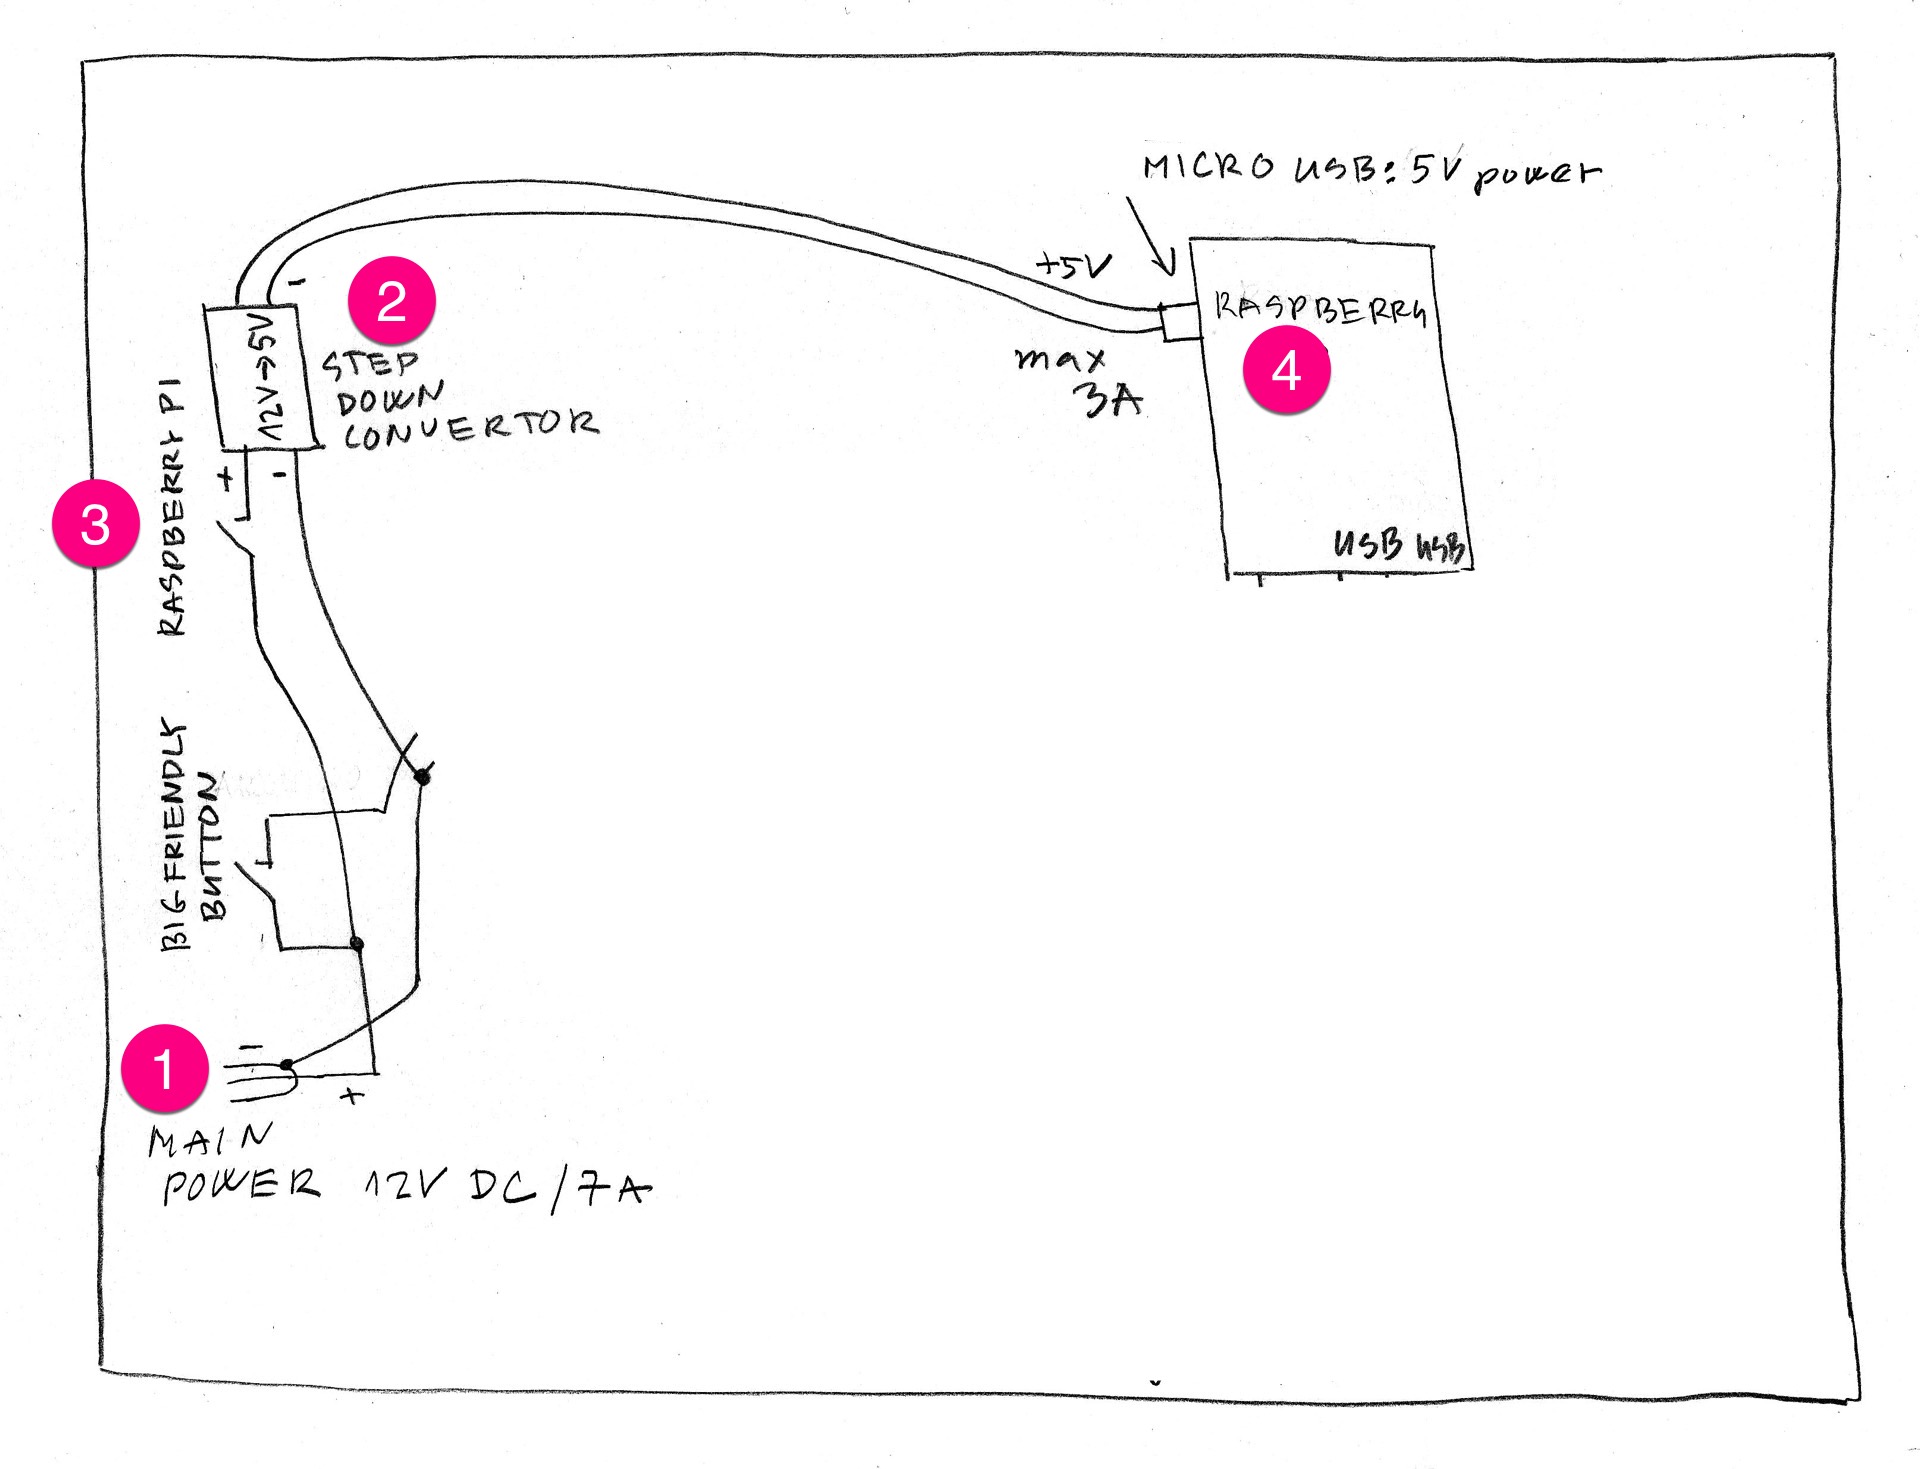 MICRO USB: 5V power
+5V
RASPBERRY
max
3A
USB USB
4
-
2
12V→5V
STEP
DOWN
CONVERTOR
+ -
3
RASPBERRY PI
BIG FRIENDLY
BUTTON
1
-
+
MAIN
POWER 12V DC/7A